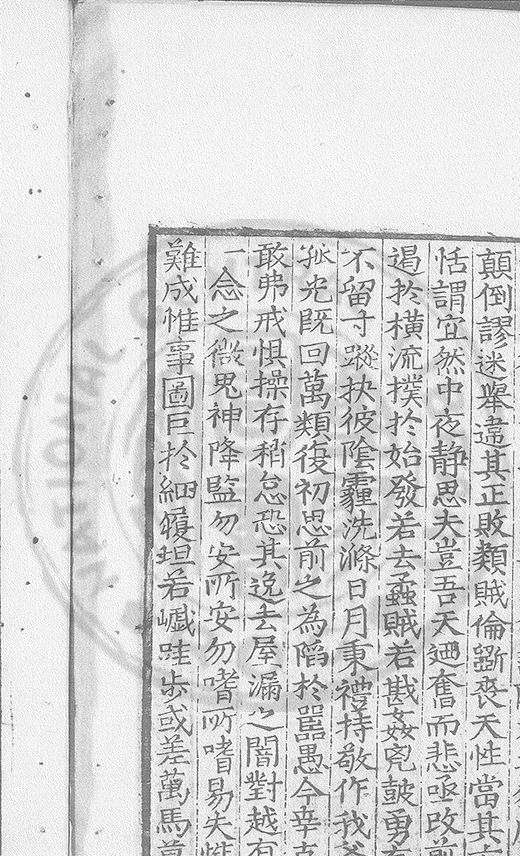 顛倒謬迷舉違其正敗類賊倫斲喪天性當其
恬謂宜然中夜静思夫豈吾天迺奮而悲亟改前
遏扵橫流撲扵始發若去蟊賊若戡姦兇皷勇
不留寸蹤抉彼陰霾洗滌日月秉禮持敬作我
孤光既回萬類復初思前之為陷扵嚚愚今幸
敢弗戒惧操存稍怠恐其逸去屋漏之闇對越有
一念之微鬼神降監勿安所安勿嗜所嗜易失惟
難成惟事圖巨扵細履坦若巇跬步或差萬馬